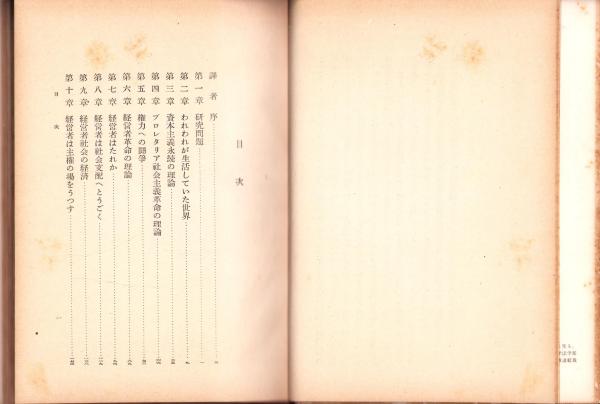 目次
譯者序
第一章 研究問題
第二章 われわれが生活していた世界
第三章 資本主義永続の理論
第四章 プロレタリア社会主義革命の理論
第五章 権力への闘爭
第六章 経営者革命の理論
第七章 経営者はたれか
第八章 経営者は社会支配へとうごく
第九章 経営者社会の経済
第十章 経営者は主権の場をうつす
目次